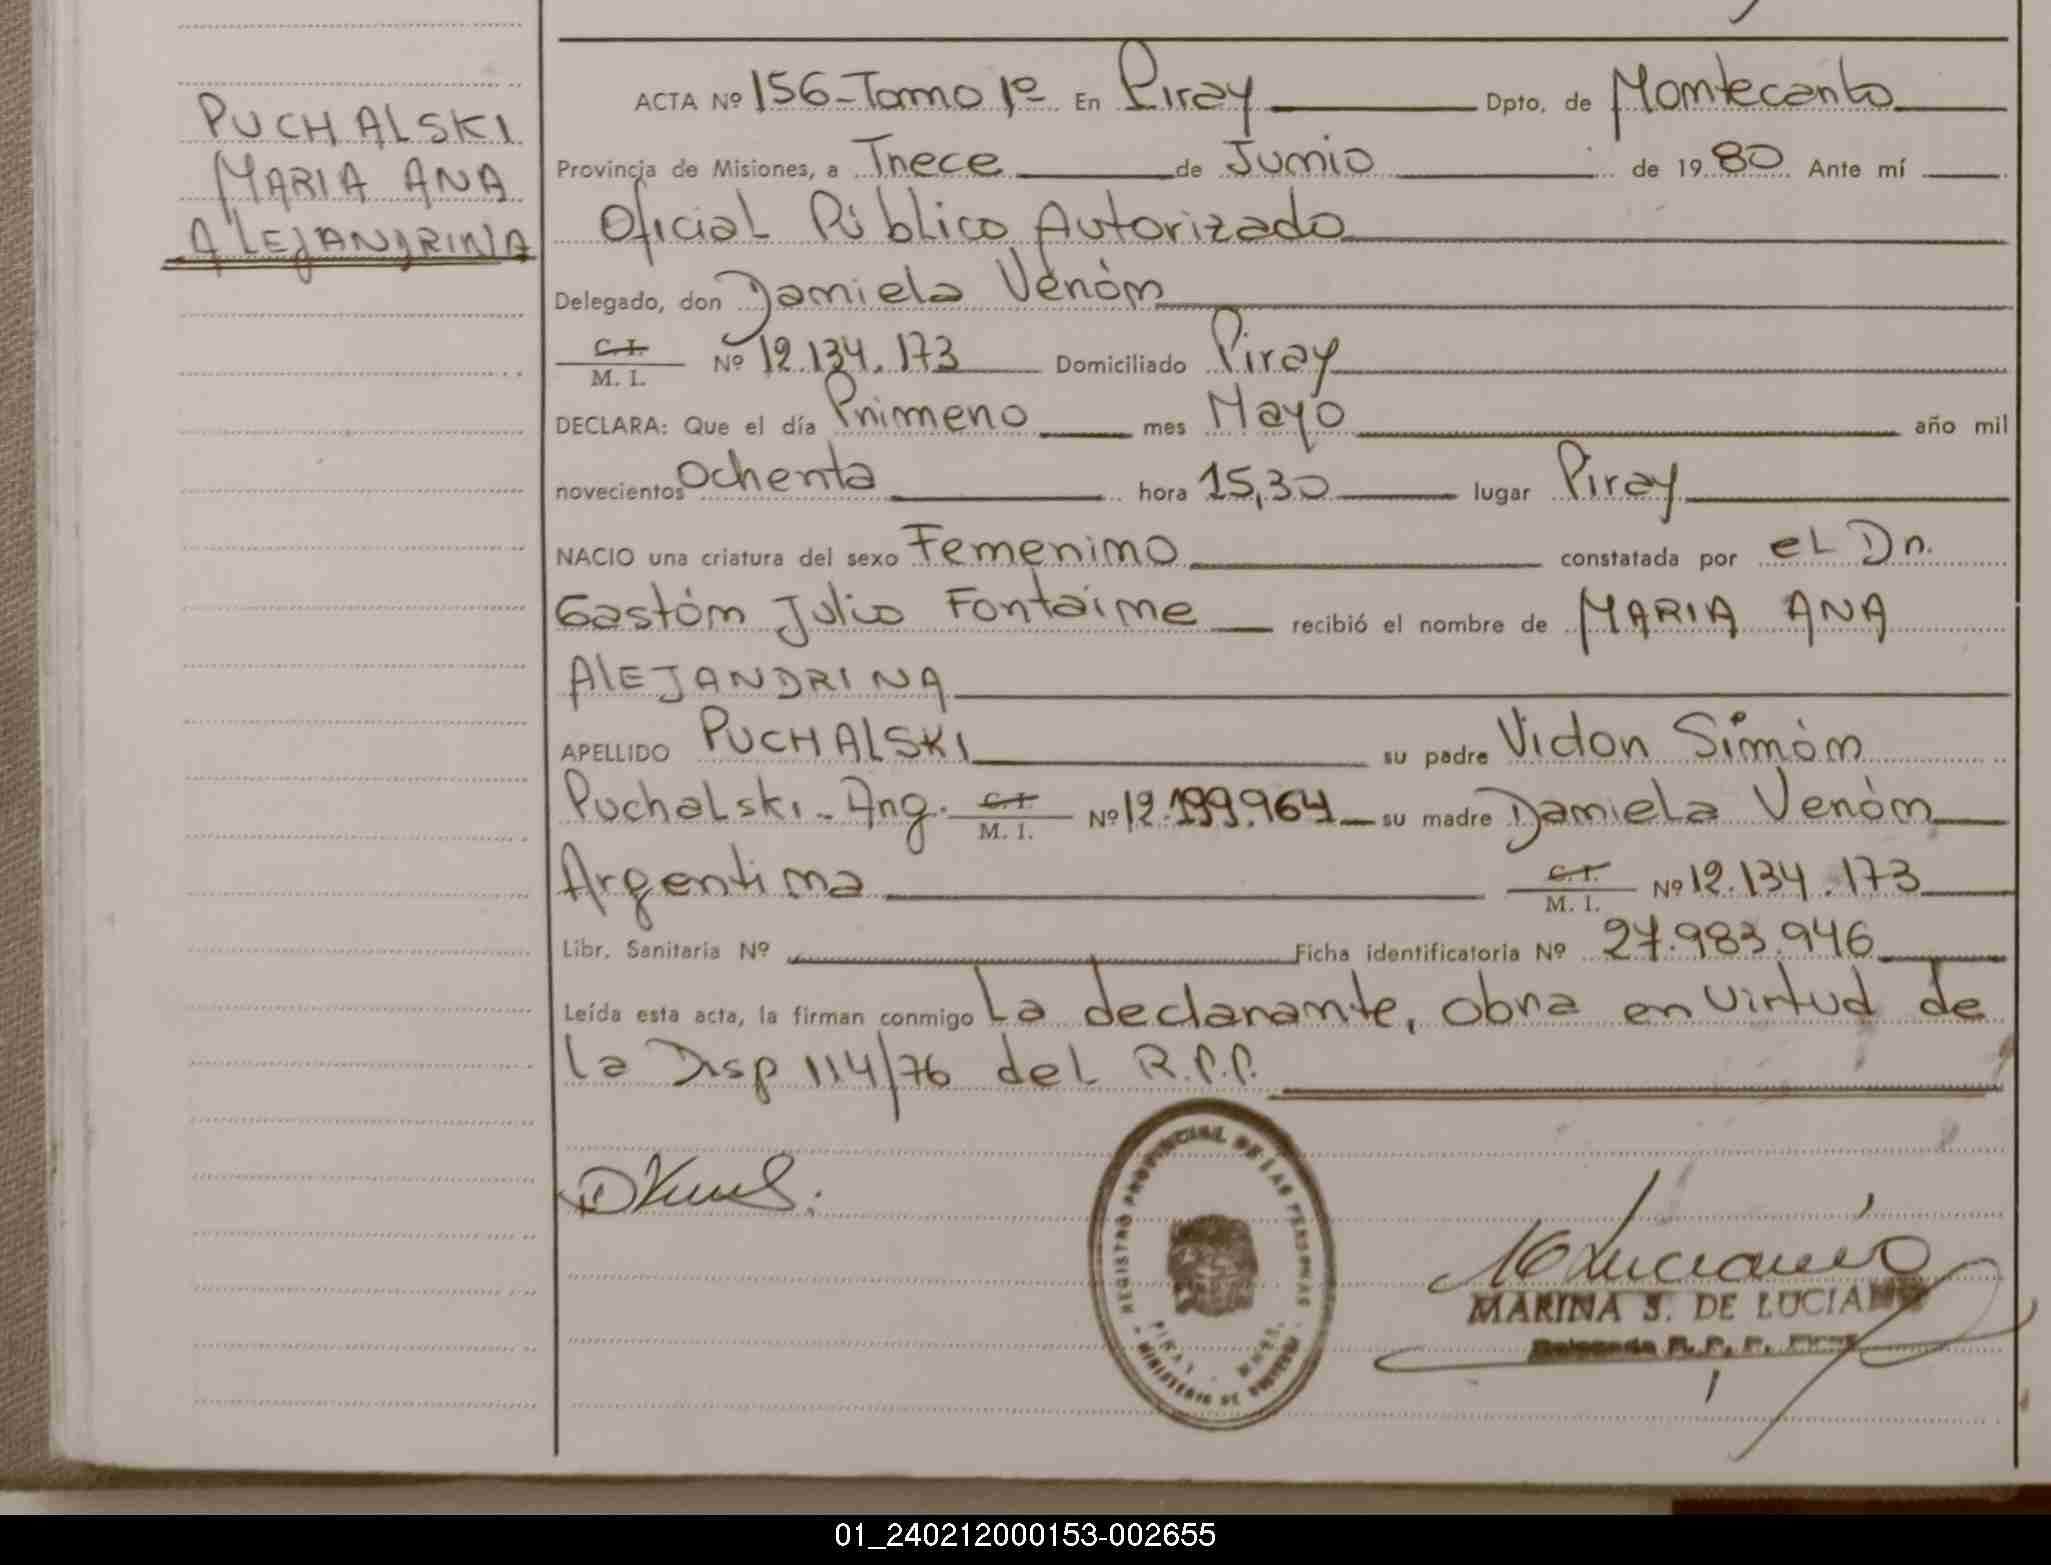 PUCHALSKI
MARIA ANA
ALEJANDRINA
ACTA Nº 156-Tomo 1º En Piray Dpto. de Montecarlo
Provincia de Misiones, a Trece de Junio de 1980 Ante mí
Oficial Público Autorizado
Delegado, don Daniela Verón
C.I. M. I. Nº 12.134.173 Domiciliado Piray
DECLARA: Que el día Primero mes Mayo año mil
novecientos Ochenta hora 15,30 lugar Piray
NACIO una criatura del sexo Femenino constatada por el Dr.
Gastón Julio Fontaine recibió el nombre de MARIA ANA
ALEJANDRINA
APELLIDO PUCHALSKI su padre Victor Simón
Puchalski-Arg. C.I. M. I. Nº 12.199.964 su madre Daniela Verón
Argentina C.I. M. I. Nº 12.134.173
Libr. Sanitaria Nº Ficha identificatoria Nº 27.983.946
Leída esta acta, la firman conmigo La declarante, obra en virtud de
la Disp 114/76 del R.P.P.
REGISTRO PROVINCIAL DE LAS PERSONAS
PIRAY - MNES.
MINISTERIO DE GOBIERNO
MARINA S. DE LUCIANO
Delegada R. P. P. Piray
01_240212000153-002655